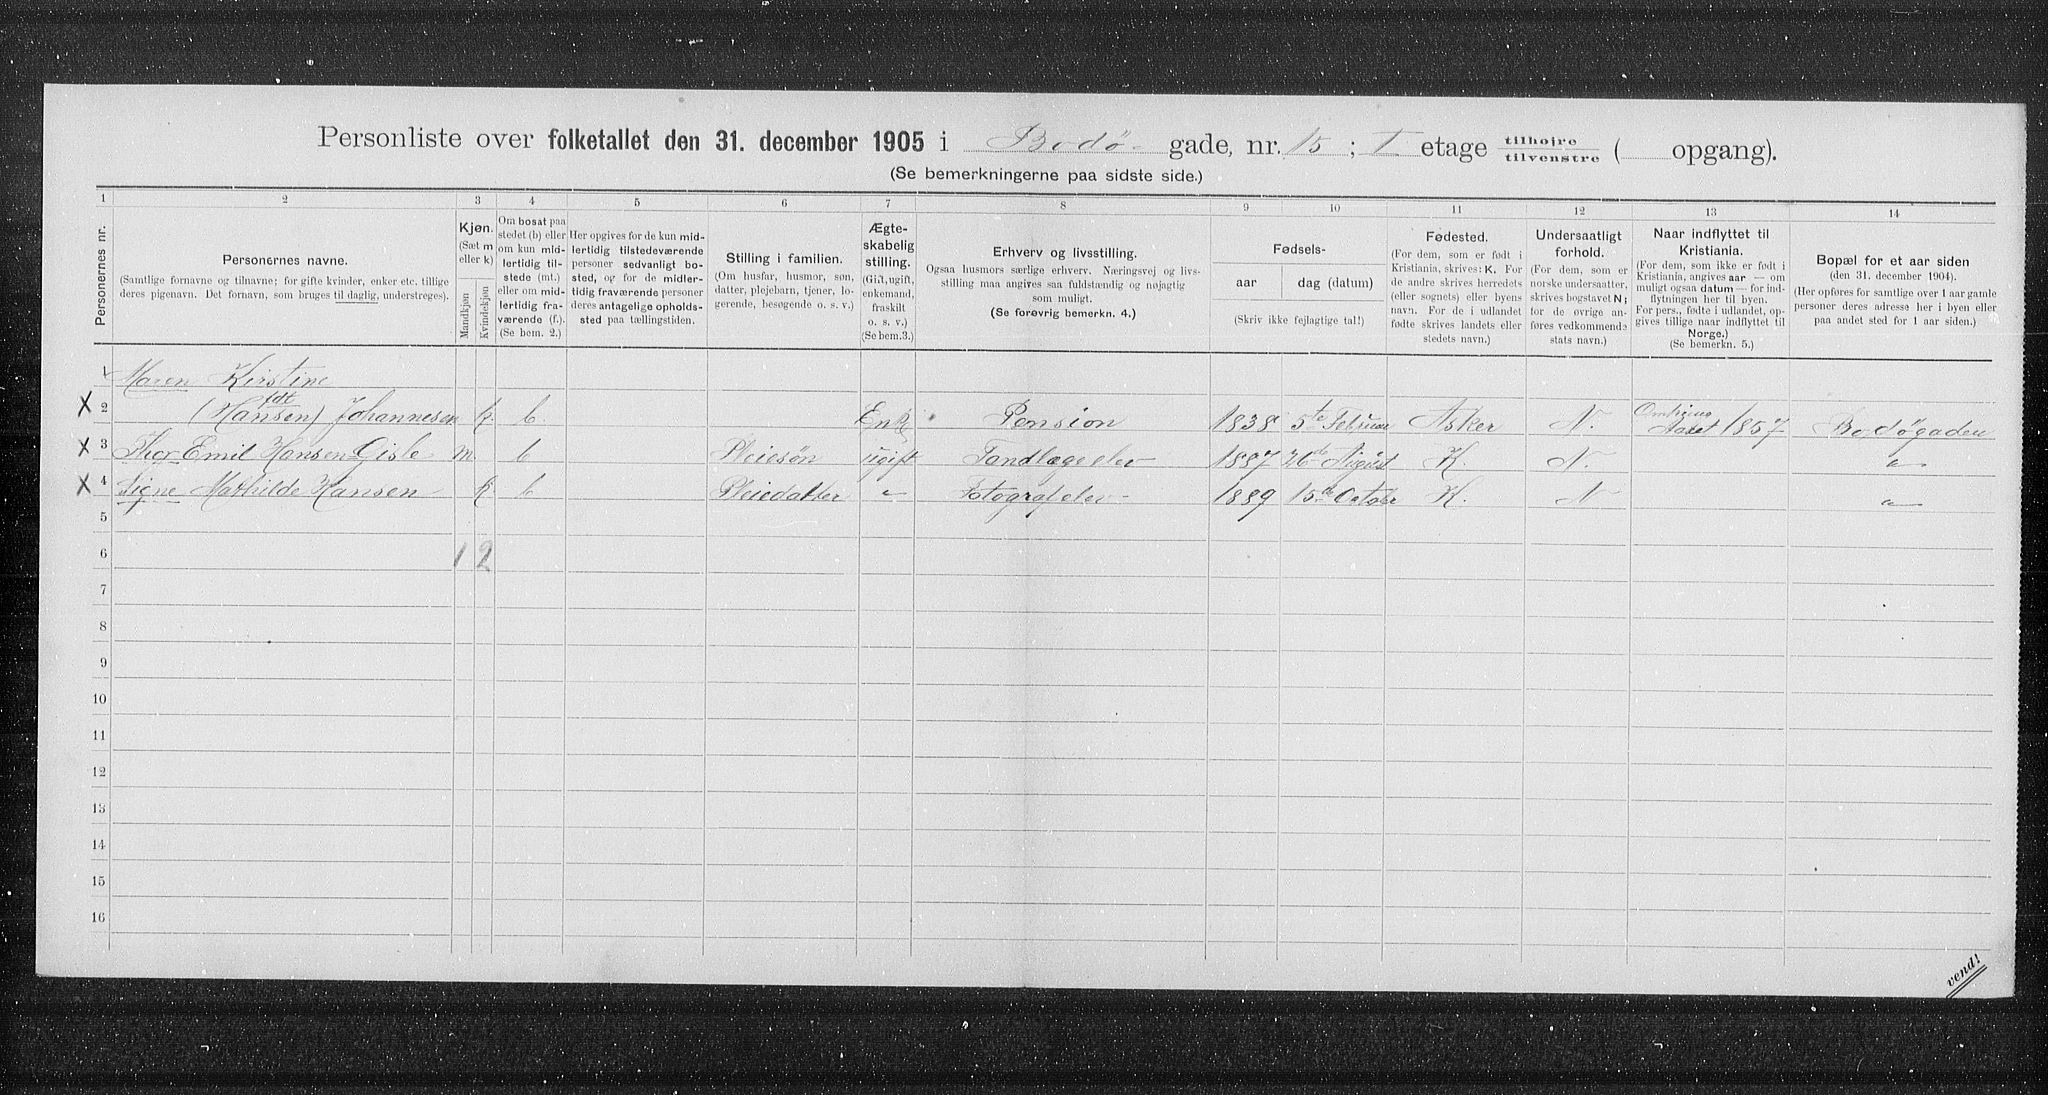 Personliste over folketallet den 31. december 1905 i Bodø- gade, nr. 15 ; I etage tilhøjre tilvenstre ( opgang).
(Se bemerkningerne paa sidste side.)
1 2 3 4 5 6 7 8 9 10 11 12 13 14
Personernes nr.
Personernes navne.
(Samtlige fornavne og tilnavne; for gifte kvinder, enker etc. tillige
deres pigenavn. Det fornavn, som bruges til daglig, understreges).
Kjøn.
(Sæt m
eller k)
Mandkjøn
Kvindekjøn
Om bosat paa
stedet (b) eller
om kun mid-
lertidig til-
stede (mt.)
eller om mid-
lertidig fra-
værende (f.).
(Se bem. 2.)
Her opgives for de kun mid-
lertidig tilstedeværende
personer sedvanligt bo-
sted, og for de midler-
tidig fraværende personer
deres antagelige opholds-
sted paa tællingstiden.
Stilling i familien.
(Om husfar, husmor, søn,
datter, plejebarn, tjener, lo-
gerende, besøgende o. s. v.)
Ægte-
skabelig
stilling.
(Gift, ugift,
enkemand,
fraskilt
o. s. v.)
(Se bem.3.)
Erhverv og livsstilling.
Ogsaa husmors særlige erhverv. Næringsvej og livs-
stilling maa angives saa fuldstændig og nøjagtig
som muligt.
(Se forøvrig bemerkn. 4.)
Fødsels-
aar dag (datum)
(Skriv ikke fejlagtige tal!)
Fødested.
(For dem, som er født i
Kristiania, skrives: K. For
de andre skrives herredets
(eller sognets) eller byens
navn. For de i udlandet
fødte skrives landets eller
stedets navn.)
Undersaatligt
forhold.
(For dem, som er
norske undersaatter,
skrives bogstavet N;
for de øvrige an-
føres vedkommende
stats navn.)
Naar indflyttet til
Kristiania.
(For dem, som ikke er født i
Kristiania, angives aar — om
muligt ogsaa datum — for ind-
flytningen her til byen.
For pers., fødte i udlandet, op-
gives tillige naar indflyttet til
Norge.)
(Se bemerkn. 5.)
Bopæl for et aar siden
(den 31. december 1904).
(Her opføres for samtlige over 1 aar gamle
personer deres adresse her i byen eller
paa andet sted for 1 aar siden.)
1 Maren Kirstine
X 2 (fdt Hansen) Johannesen k. b. Enke Pension 1838 5te Februar Asker N. Omkring Aaret 1857 Bodøgaden
X 3 Thor Emil Hansen Gisle m b Pleiesøn ugift Tandlægeelev 1887 26de August K. N. "
X 4 Signe Mathilde Hansen k. b Pleiedatter " Fotografelev- 1889 15de October K. N "
5
6 1 2
7
8
9
10
11
12
13
14
15
16
vend!